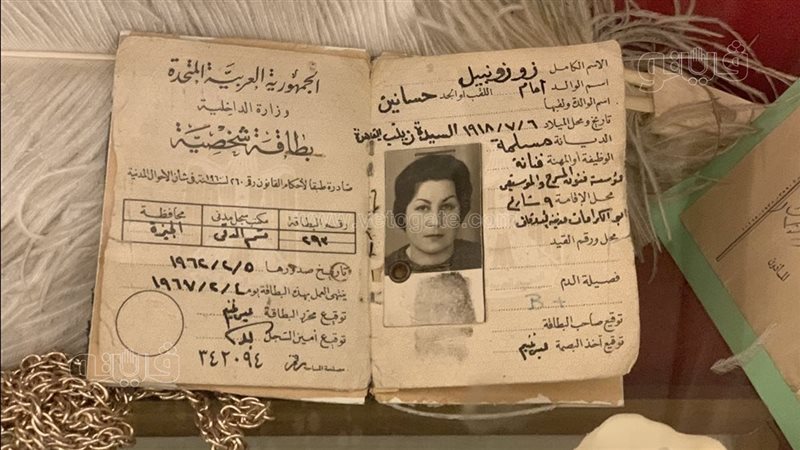 الجمهورية العربية المتحدة
وزارة الداخلية
بطاقة شخصية
صادرة طبقا لأحكام القانون رقم ٢٦٠ لسنة ١٩٦٠ في شأن الأحوال المدنية
رقم البطاقة
مكتب سجل مدني
محافظة
٢٩٣
قسم الدقى
الجيزة
تاريخ صدورها ١٩٦٢/٢/٥
ينتهى العمل بهذه البطاقة يوم ١٩٦٧/٢/٤
توقيع محرر البطاقة
توقيع أمين السجل
٣٤٢٠٩٤
الاسم الكامل زوزو نبيل
اسم الوالد امام اللقب أو الجد حسانين
اسم الوالدة ولقبها
تاريخ ومحل الميلاد ١٩١٨/٧/٦ السيدة زينب القاهرة
الديانة مسلمة
الوظيفة أو المهنة فنانة
مؤسسة فنون المسرح والموسيقى
محل الإقامة ٩ شارع
محل ورقم القيد
فصيلة الدم
B +
توقيع صاحب البطاقة
توقيع آخذ البصمة
www.vetogate.com
فيتو
فيتو